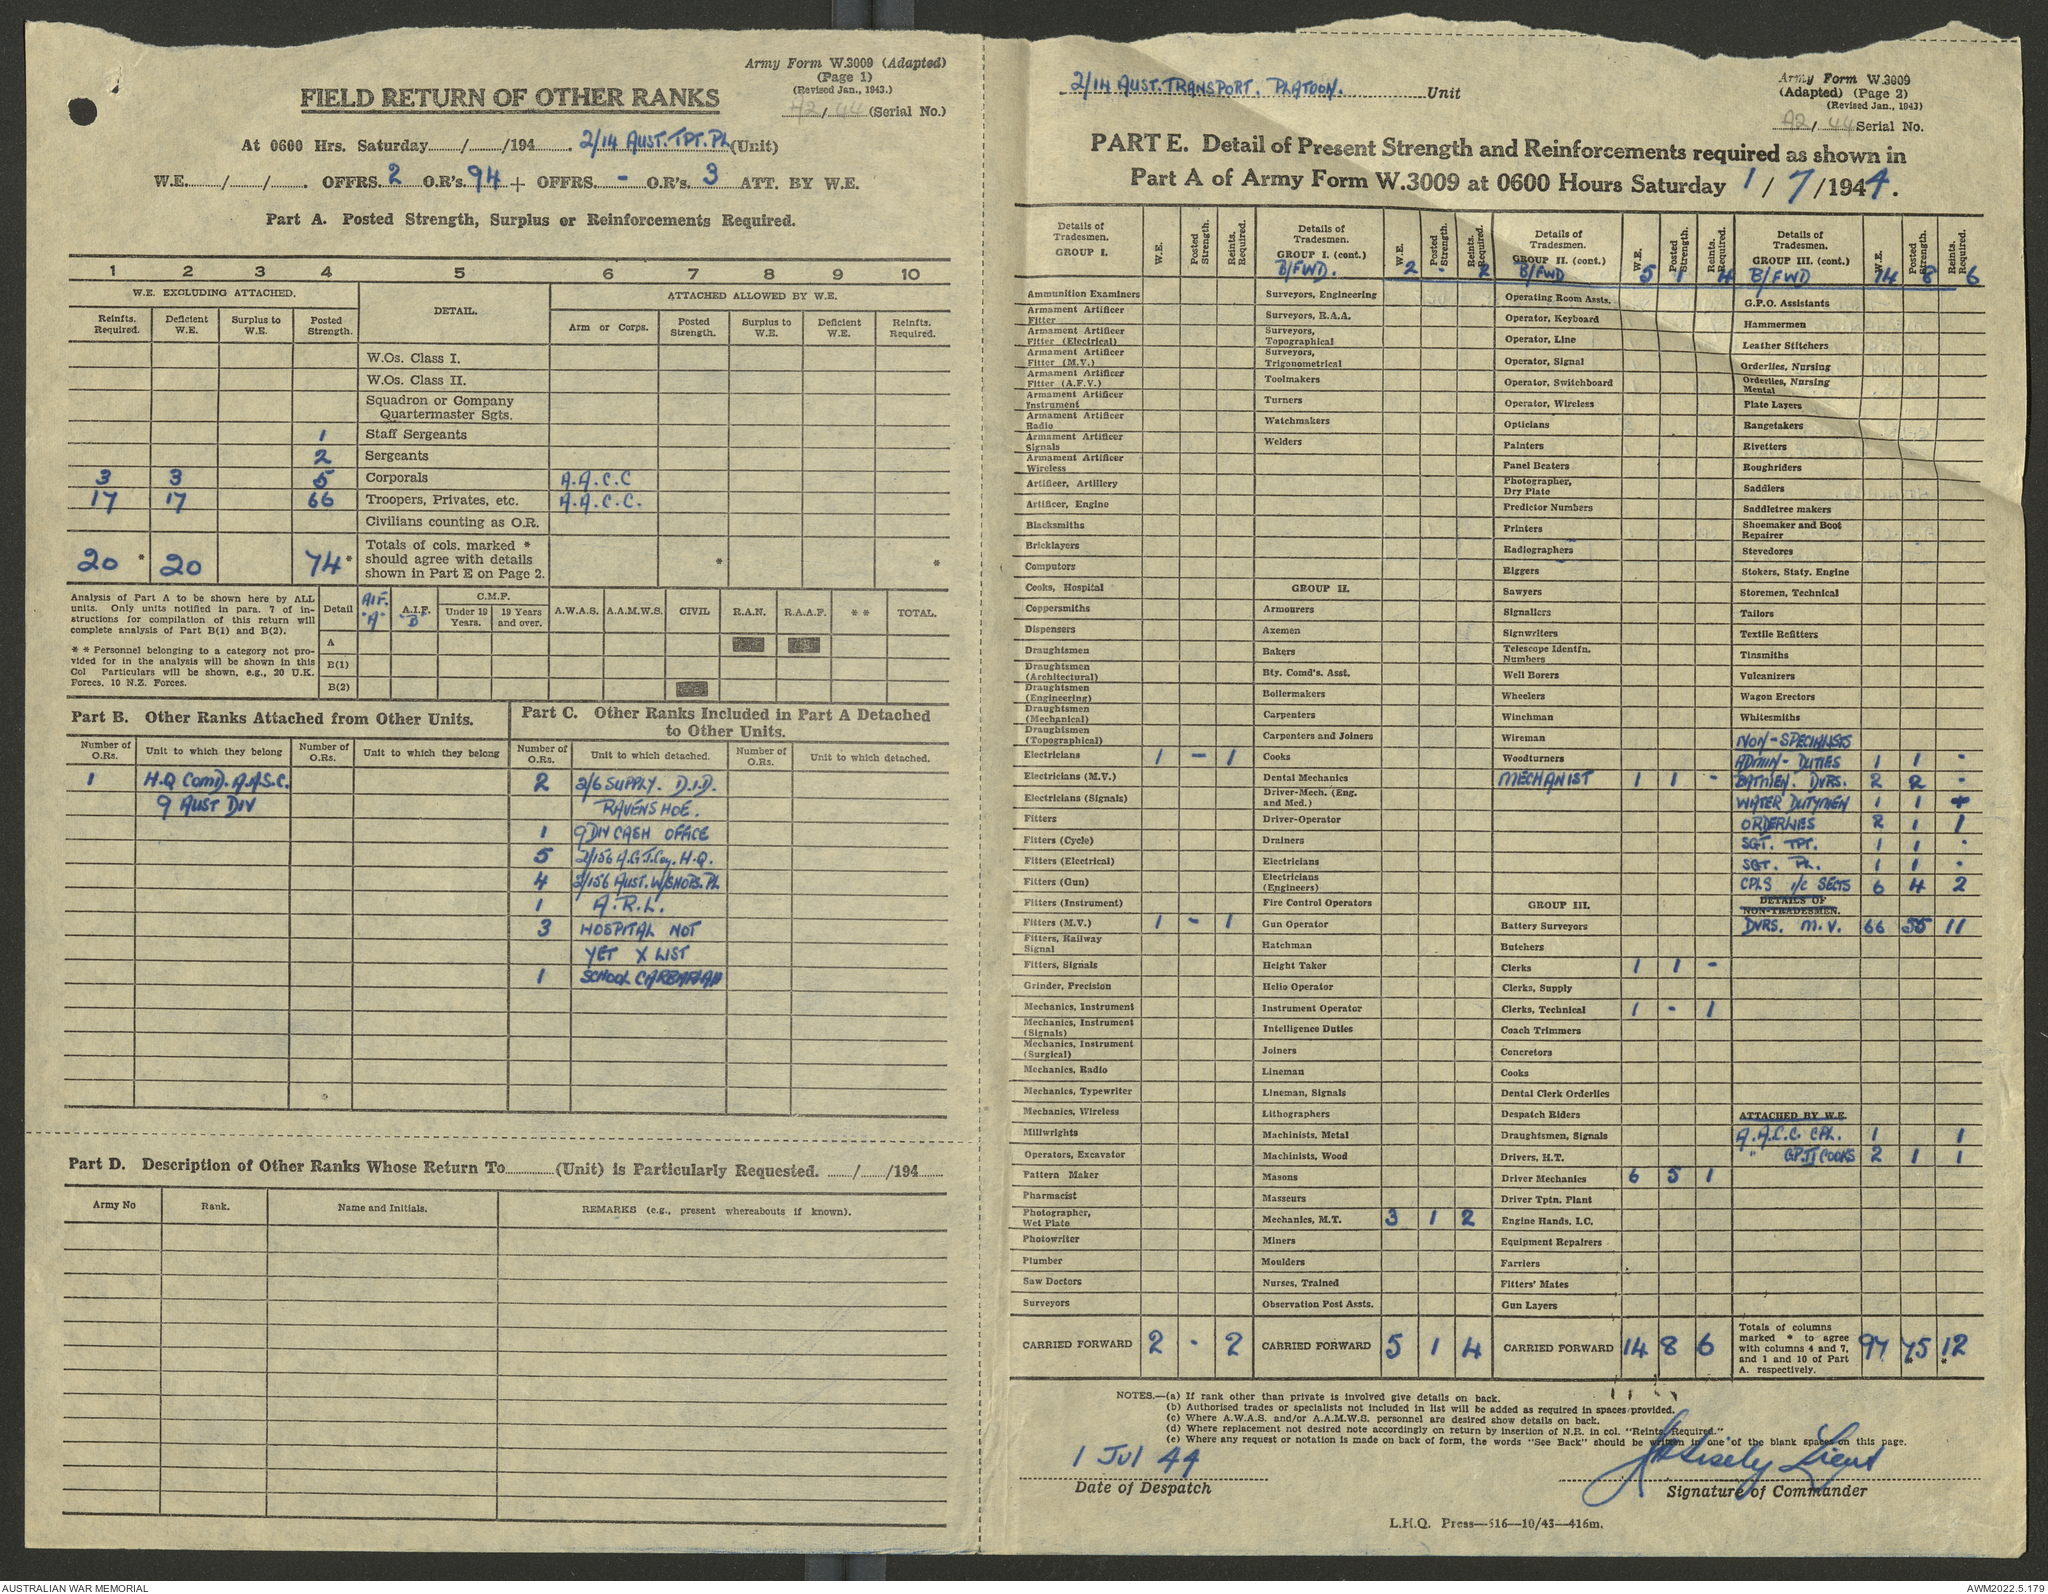 Army Form W.3009 (Adapted)
(Page 1)
(Revised Jan., 1943.)
FIELD RETURN OF OTHER RANKS
A2/44 (Serial No.)
At 0600 Hrs. Saturday....../....../194...... 2/14 AUST. TPT. PL (Unit)
W.E....../....../...... OFFRS. 2 O.R's. 94 + OFFRS. - O.R's. 3 ATT. BY W.E.
Part A. Posted Strength, Surplus or Reinforcements Required.
1 2 3 4 5 6 7 8 9 10
W.E. EXCLUDING ATTACHED. DETAIL. ATTACHED ALLOWED BY W.E.
Reinfts. Required. Deficient W.E. Surplus to W.E. Posted Strength. Arm or Corps. Posted Strength. Surplus to W.E. Deficient W.E. Reinfts. Required.
W.Os. Class I.
W.Os. Class II.
Squadron or Company Quartermaster Sgts.
1 Staff Sergeants
2 Sergeants
3 3 5 Corporals A.A.C.C
17 17 66 Troopers, Privates, etc. A.A.C.C.
Civilians counting as O.R.
20 * 20 74 * Totals of cols. marked * should agree with details shown in Part E on Page 2. * *
Analysis of Part A to be shown here by ALL units. Only units notified in para. 7 of instructions for compilation of this return will complete analysis of Part B(1) and B(2).
* * Personnel belonging to a category not provided for in the analysis will be shown in this Col Particulars will be shown, e.g., 20 U.K. Forces, 10 N.Z. Forces.
Detail AIF. "A" A.I.F. B C.M.F. Under 19 Years. 19 Years and over. A.W.A.S. A.A.M.W.S. CIVIL R.A.N. R.A.A.F. * * TOTAL.
A
B(1)
B(2)
Part B. Other Ranks Attached from Other Units.
Number of O.Rs. Unit to which they belong Number of O.Rs. Unit to which they belong
1 H.Q COMD. A.A.S.C.
9 AUST DIV
Part C. Other Ranks Included in Part A Detached to Other Units.
Number of O.Rs. Unit to which detached. Number of O.Rs. Unit to which detached.
2 2/6 SUPPLY. D.I.D.
RAVENSHOE.
1 9 DIV CASH OFFICE
5 2/156 A.G.T. Coy. H.Q.
4 2/156 AUST. W/SHOPS. PL
1 A.R.L.
3 HOSPITAL NOT
YET X LIST
1 SCHOOL
Part D. Description of Other Ranks Whose Return To............(Unit) is Particularly Requested. ....../....../194......
Army No Rank. Name and Initials. REMARKS (e.g., present whereabouts if known).
2/14 AUST. TRANSPORT. PLATOON. Unit
Army Form W.3009
(Adapted) (Page 2)
(Revised Jan., 1943)
A2/44 Serial No.
PART E. Detail of Present Strength and Reinforcements required as shown in
Part A of Army Form W.3009 at 0600 Hours Saturday 1/7/1944.
Details of Tradesmen. GROUP I. W.E. Posted Strength. Reints. Required.
Ammunition Examiners
Armament Artificer Fitter
Armament Artificer Fitter (Electrical)
Armament Artificer Fitter (M.V.)
Armament Artificer Fitter (A.F.V.)
Armament Artificer Instrument
Armament Artificer Radio
Armament Artificer Signals
Armament Artificer Wireless
Artificer, Artillery
Artificer, Engine
Blacksmiths
Bricklayers
Computors
Cooks, Hospital
Coppersmiths
Dispensers
Draughtsmen
Draughtsmen (Architectural)
Draughtsmen (Engineering)
Draughtsmen (Mechanical)
Draughtsmen (Topographical)
Electricians 1 - 1
Electricians (M.V.)
Electricians (Signals)
Fitters
Fitters (Cycle)
Fitters (Electrical)
Fitters (Gun)
Fitters (Instrument)
Fitters (M.V.) 1 - 1
Fitters, Railway Signal
Fitters, Signals
Grinder, Precision
Mechanics, Instrument
Mechanics, Instrument (Signals)
Mechanics, Instrument (Surgical)
Mechanics, Radio
Mechanics, Typewriter
Mechanics, Wireless
Millwrights
Operators, Excavator
Pattern Maker
Pharmacist
Photographer, Wet Plate
Photowriter
Plumber
Saw Doctors
Surveyors
CARRIED FORWARD 2 - 2
Details of Tradesmen. GROUP I. (cont.) W.E. Posted Strength. Reints. Required.
B/FWD. 2 - 2
Surveyors, Engineering
Surveyors, R.A.A.
Surveyors, Topographical
Surveyors, Trigonometrical
Toolmakers
Turners
Watchmakers
Welders
GROUP II.
Armourers
Axemen
Bakers
Bty. Comd's. Asst.
Boilermakers
Carpenters
Carpenters and Joiners
Cooks
Dental Mechanics
Driver-Mech. (Eng. and Med.)
Driver-Operator
Drainers
Electricians
Electricians (Engineers)
Fire Control Operators
Gun Operator
Hatchman
Height Taker
Helio Operator
Instrument Operator
Intelligence Duties
Joiners
Lineman
Lineman, Signals
Lithographers
Machinists, Metal
Machinists, Wood
Masons
Masseurs
Mechanics, M.T. 3 1 2
Miners
Moulders
Nurses, Trained
Observation Post Assts.
CARRIED FORWARD 5 1 4
Details of Tradesmen. GROUP II. (cont.) W.E. Posted Strength. Reints. Required.
B/FWD 5 1 4
Operating Room Assts.
Operator, Keyboard
Operator, Line
Operator, Signal
Operator, Switchboard
Operator, Wireless
Opticians
Painters
Panel Beaters
Photographer, Dry Plate
Predictor Numbers
Printers
Radiographers
Riggers
Sawyers
Signallers
Signwriters
Telescope Identfn. Numbers
Well Borers
Wheelers
Winchman
Wireman
Woodturners
MECHANIST 1 1 -
GROUP III.
Battery Surveyors
Butchers
Clerks 1 1 -
Clerks, Supply
Clerks, Technical 1 - 1
Coach Trimmers
Concretors
Cooks
Dental Clerk Orderlies
Despatch Riders
Draughtsmen, Signals
Drivers, H.T.
Driver Mechanics 6 5 1
Driver Tptn. Plant
Engine Hands, I.C.
Equipment Repairers
Farriers
Fitters' Mates
Gun Layers
CARRIED FORWARD 14 8 6
Details of Tradesmen. GROUP III. (cont.) W.E. Posted Strength. Reints. Required.
B/FWD 14 8 6
G.P.O. Assistants
Hammermen
Leather Stitchers
Orderlies, Nursing
Orderlies, Nursing Mental
Plate Layers
Rangetakers
Rivetters
Roughriders
Saddlers
Saddletree makers
Shoemaker and Boot Repairer
Stevedores
Stokers, Staty. Engine
Storemen, Technical
Tailors
Textile Refitters
Tinsmiths
Vulcanizers
Wagon Erectors
Whitesmiths
NON-SPECIALISTS
ADMIN-DUTIES 1 1 -
BATMEN. DVRS. 2 2 -
WATER DUTYMEN 1 1
ORDERLIES 2 1 1
SGT. TPT. 1 1 -
SGT. PL. 1 1 -
CPLS i/c SECTS 6 4 2
DETAILS OF NON-TRADESMEN.
DVRS. M.V. 66 55 11
ATTACHED BY W.E.
A.A.C.C. CPL. 1 1
" GP. II COOKS 2 1 1
Totals of columns marked * to agree with columns 4 and 7, and 1 and 10 of Part A. respectively. 97 75 * 12 *
NOTES.—(a) If rank other than private is involved give details on back.
(b) Authorised trades or specialists not included in list will be added as required in spaces provided.
(c) Where A.W.A.S. and/or A.A.M.W.S. personnel are desired show details on back.
(d) Where replacement not desired note accordingly on return by insertion of N.R. in col. "Reints. Required."
(e) Where any request or notation is made on back of form, the words "See Back" should be written in one of the blank spaces on this page.
1 JUL 44
Date of Despatch
Lieut
Signature of Commander
L.H.Q. Press—516—10/43—416m.
AUSTRALIAN WAR MEMORIAL
AWM2022.5.179